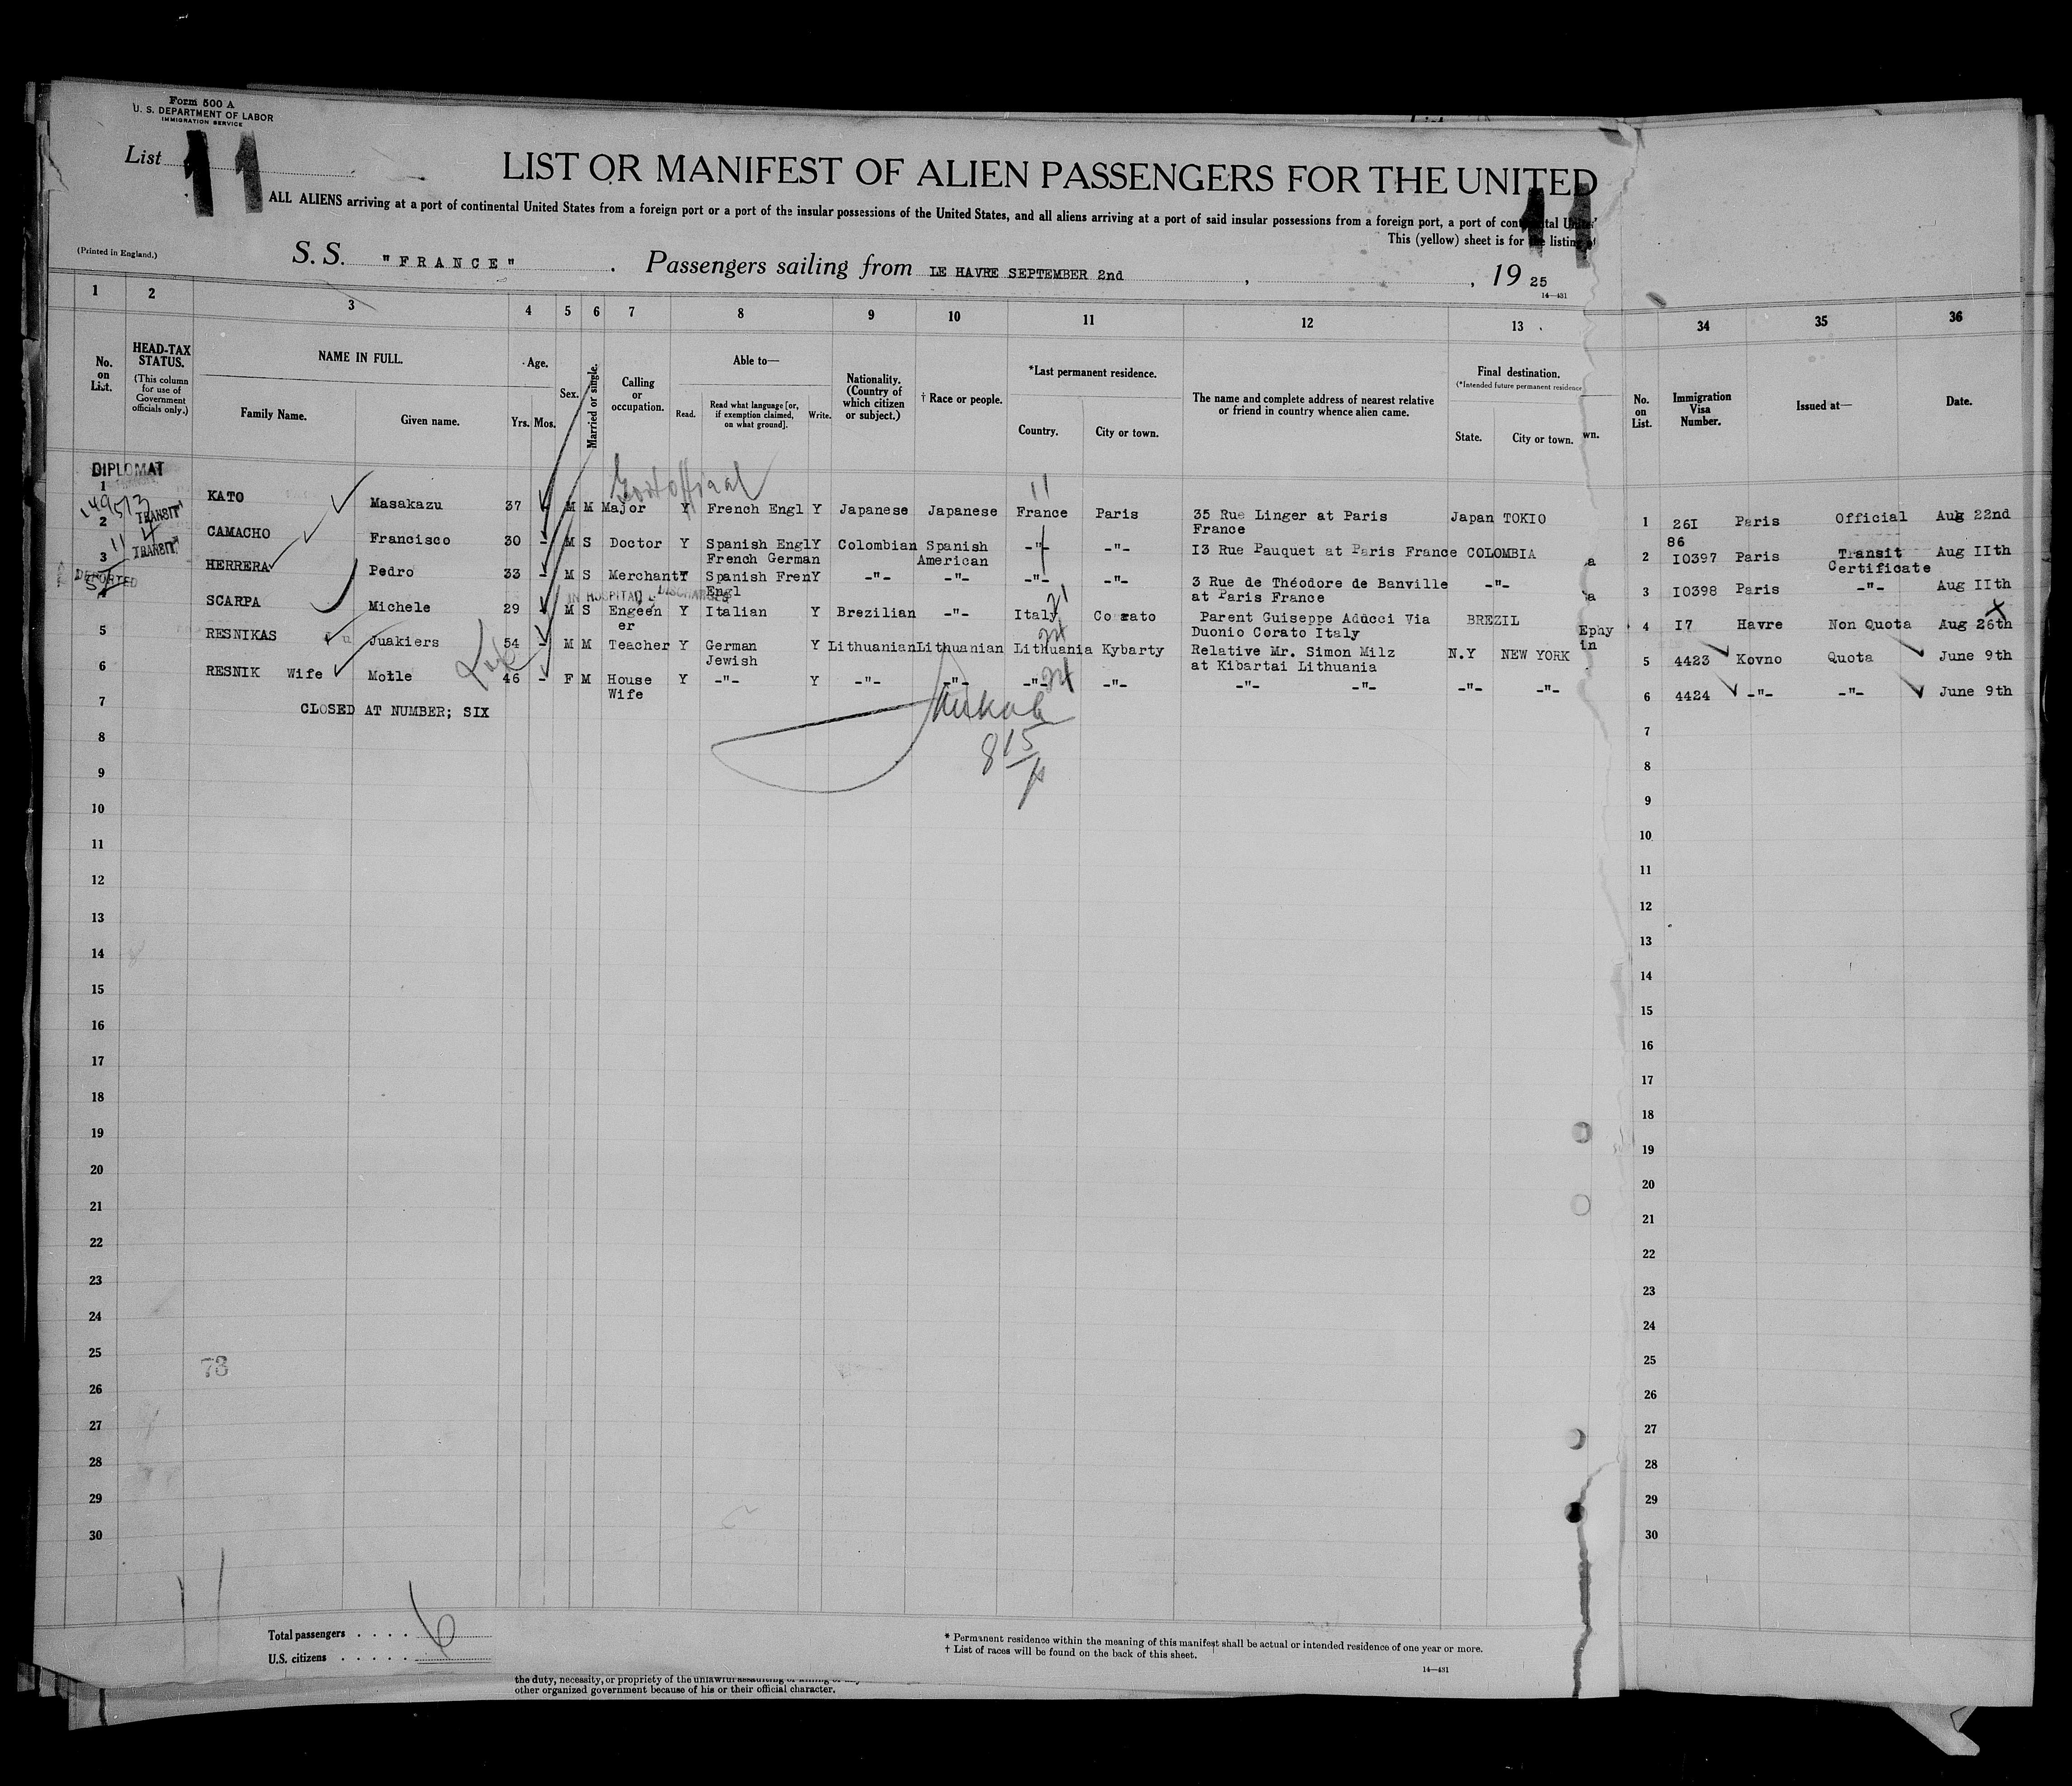 Form 500 A
U. S. DEPARTMENT OF LABOR
IMMIGRATION SERVICE
List 11
LIST OR MANIFEST OF ALIEN PASSENGERS FOR THE UNITED
ALL ALIENS arriving at a port of continental United States from a foreign port or a port of the insular possessions of the United States, and all aliens arriving at a port of said insular possessions from a foreign port, a port of continental
11
This (yellow) sheet is for the listing
(Printed in England.)
S. S. "FRANCE" . Passengers sailing from LE HAVRE SEPTEMBER 2nd , , 19 25
14—431
1 2 3 4 5 6 7 8 9 10 11 12 13 34 35 36
No. on List.
HEAD-TAX STATUS.
(This column for use of Government officials only.)
NAME IN FULL.
Family Name. Given name.
Age.
Yrs. Mos.
Sex.
Married or single.
Calling or occupation.
Able to—
Read. Read what language [or, if exemption claimed, on what ground]. Write.
Nationality. (Country of which citizen or subject.)
† Race or people.
*Last permanent residence.
Country. City or town.
The name and complete address of nearest relative or friend in country whence alien came.
Final destination.
(*Intended future permanent residence
State. City or town. wn.
No. on List.
Immigration Visa Number.
Issued at—
Date.
DIPLOMAT
1 KATO Masakazu 37 - M M Major Y French Engl Y Japanese Japanese France Paris 35 Rue Linger at Paris Japan TOKIO 1 26I Paris Official Aug 22nd
France
11
TRANSIT
86
2 CAMACHO Francisco 30 - M S Doctor Y Spanish Engl Y Colombian Spanish -"- -"- I3 Rue Pauquet at Paris France COLOMBIA a 2 I0397 Paris Transit Aug IIth
French German American Certificate
TRANSIT
3 HERRERA Pedro 33 - M S Merchant Y Spanish Fren Y -"- -"- -"- -"- 3 Rue de Théodore de Banville -"- a 3 I0398 Paris -"- Aug IIth
Engl at Paris France
DEPORTED
IN HOSPITAL DISCHARGED
SCARPA Michele 29 M S Engeen Y Italian Y Brezilian -"- Italy Corato Parent Guiseppe Aducci Via BREZIL Ephy 4 I7 Havre Non Quota Aug 26th
er Duonio Corato Italy in
5 RESNIKAS Juakiers 54 - M M Teacher Y German Y Lithuanian Lithuanian Lithuania Kybarty Relative Mr. Simon Milz N.Y NEW YORK 5 4423 Kovno Quota June 9th
Jewish at Kibartai Lithuania
6 RESNIK Wife Motle 46 - F M House Y -"- Y -"- -"- -"- -"- -"- -"- -"- -"- 6 4424 -"- -"- June 9th
Wife
7 CLOSED AT NUMBER; SIX 7
8 8
9 9
10 10
11 11
12 12
13 13
14 14
15 15
16 16
17 17
18 18
19 19
20 20
21 21
22 22
23 23
24 24
25 25
73
26 26
27 27
28 28
29 29
30 30
Total passengers . . . . 6
U.S. citizens . . . . .
* Permanent residence within the meaning of this manifest shall be actual or intended residence of one year or more.
† List of races will be found on the back of this sheet.
14—431
the duty, necessity, or propriety of the unlawful assaulting or killing of any
other organized government because of his or their official character.